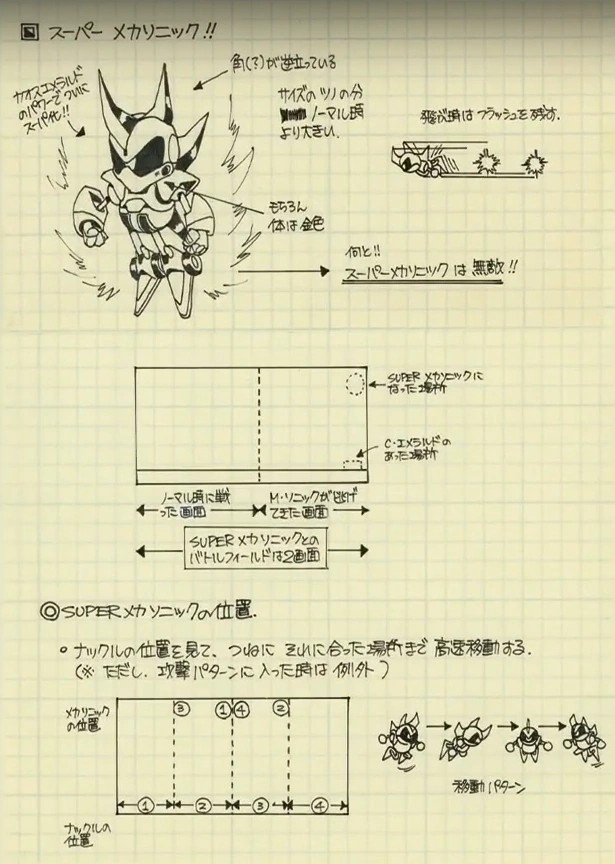 スーパー メカソニック!!
カオスエメラルド
のパワーで ついに
スーパー化!!
角(?)が逆立っている
サイズのツノの分
ノーマル時
より大きい.
飛行時は フラッシュを残す.
もちろん
体は金色
何と!!
スーパーメカソニックは無敵!!
SUPER メカソニックに
なった場所
C・エメラルドの
あった場所
ノーマル時に戦
った画面
M・ソニックが逃げ
てきた画面
SUPERメカソニックとの
バトルフィールドは2画面
◎SUPERメカソニックの位置.
○ ナックルの位置を見て、つねに それに合った場所まで 高速移動する.
(※ ただし、攻撃パターンに入った時は 例外)
メカソニック
の位置
③ ①④ ②
① ② ③ ④
ナックルの
位置
移動パターン